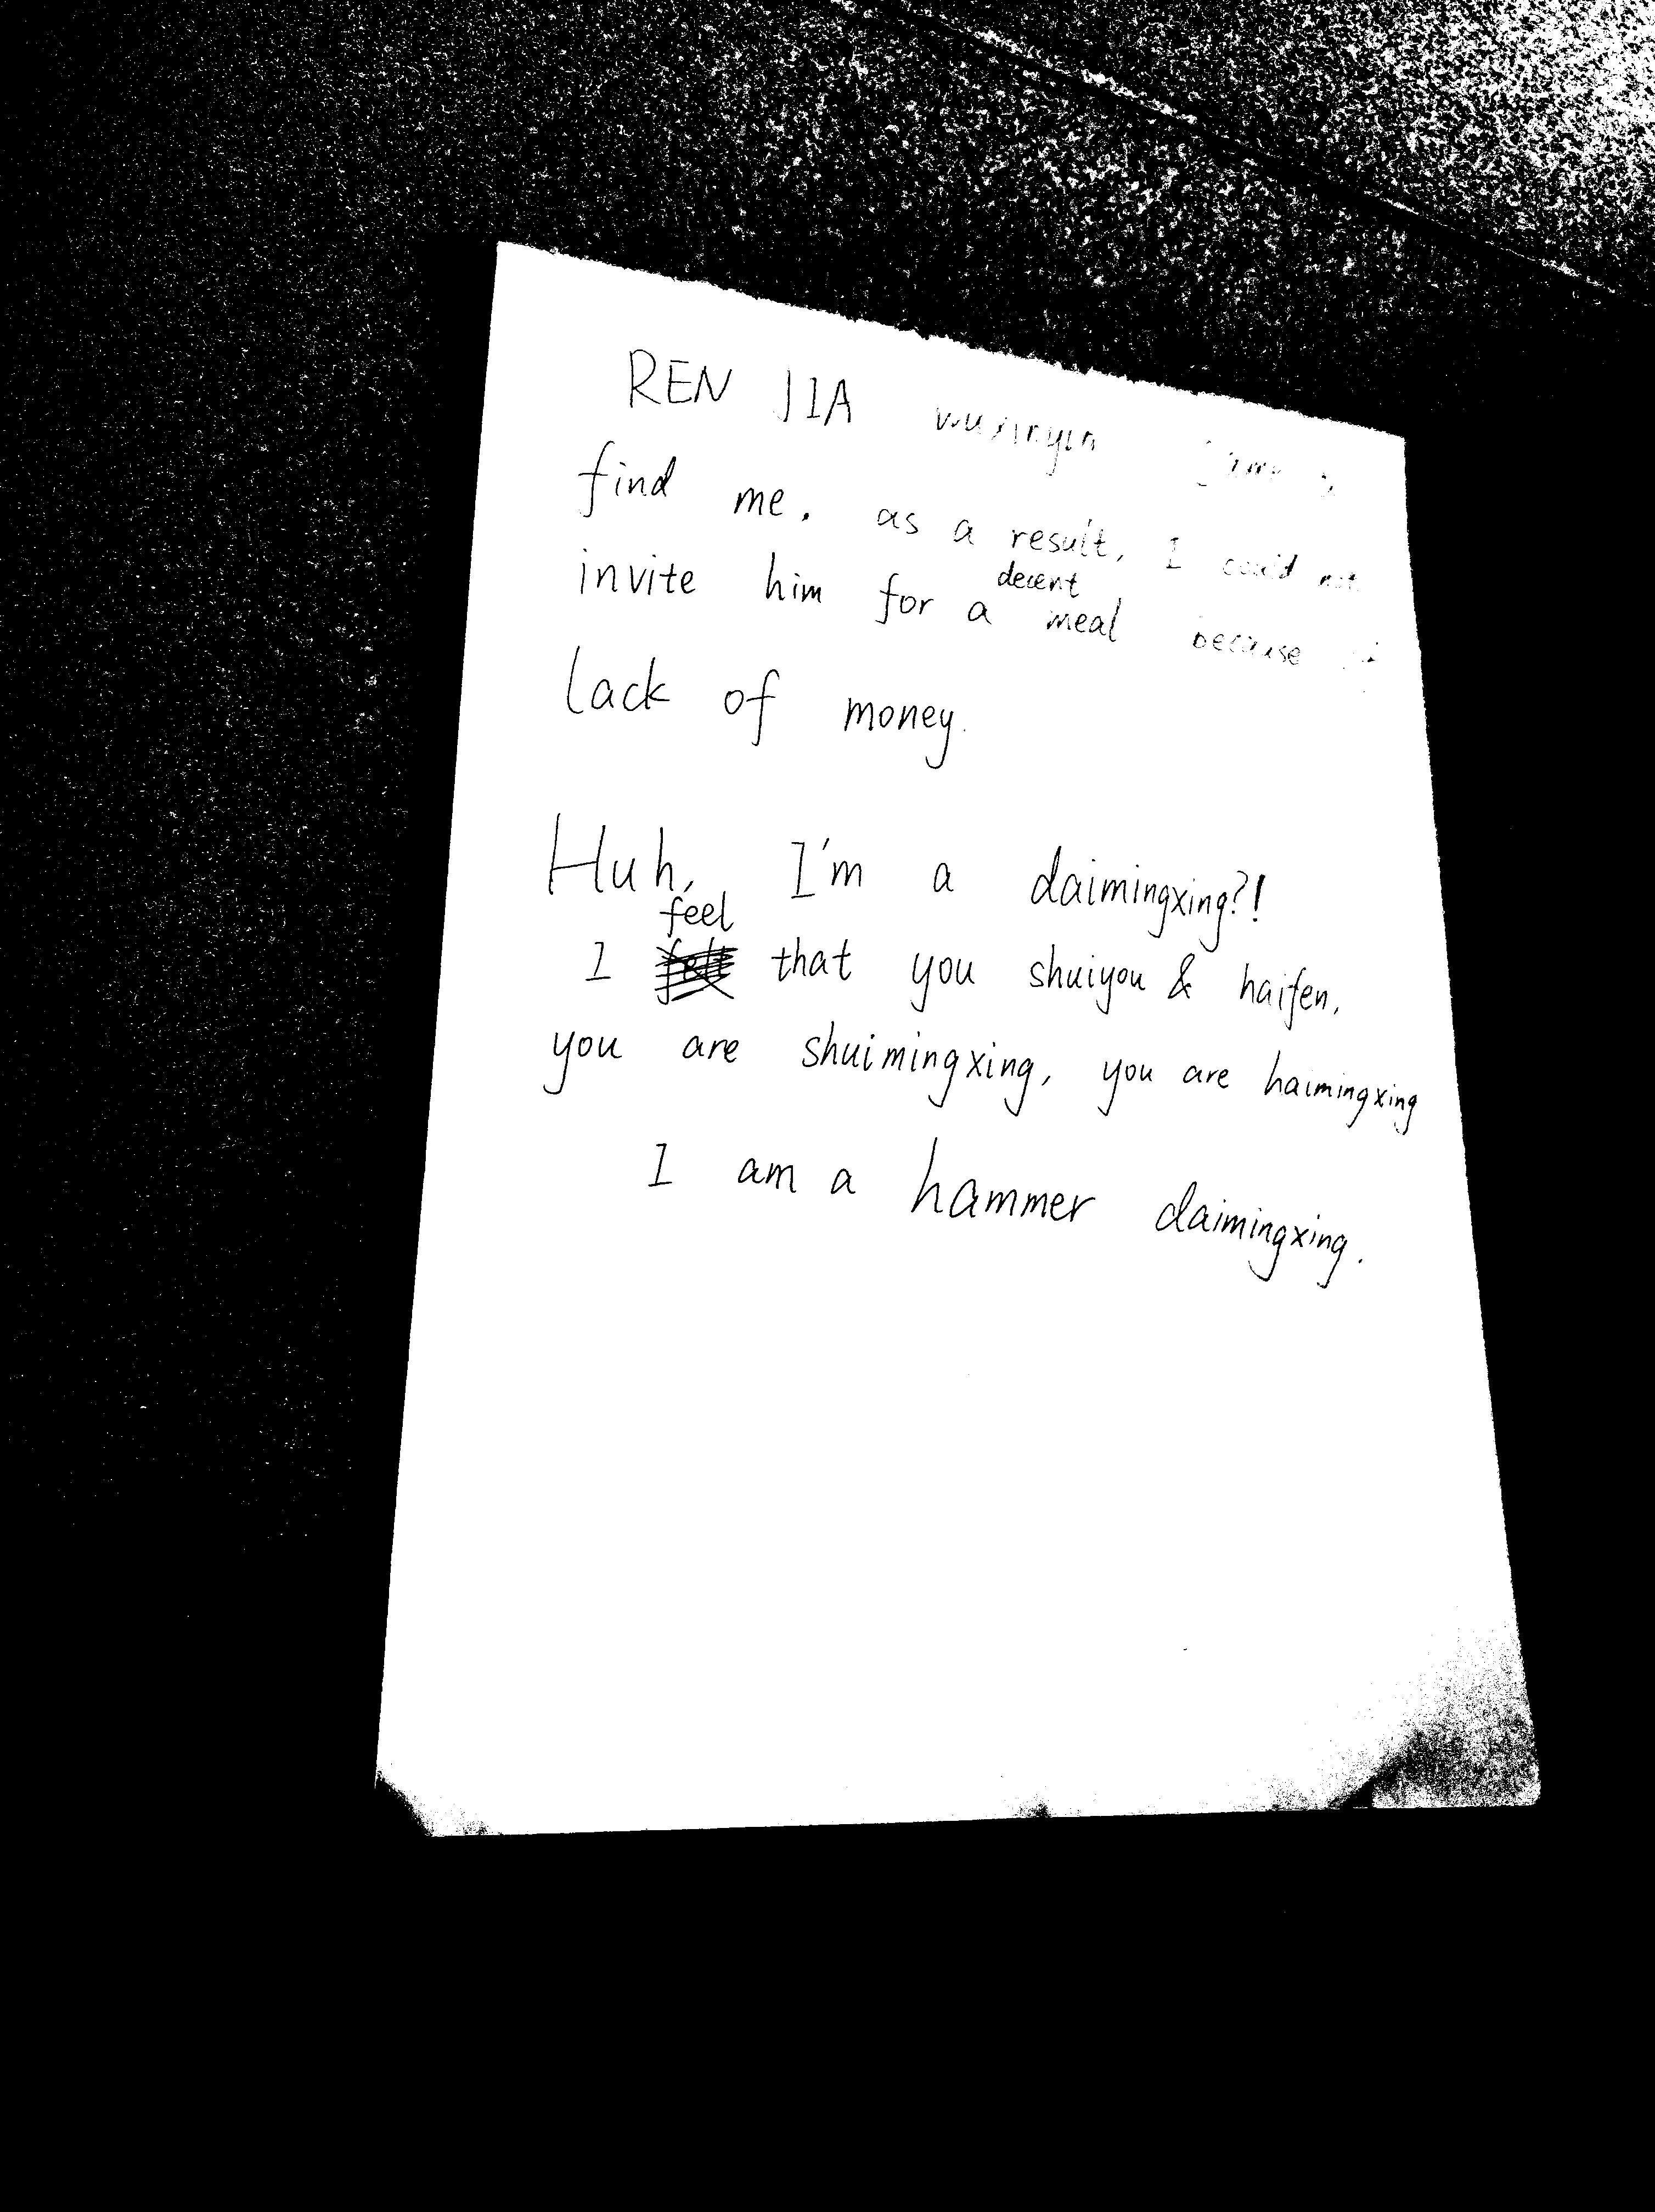 REN JIA wuxinyin
find me. as a result, I could not
invite him for a decent meal because
lack of money.
Huh, I'm a daimingxing?!
I feel that you shuiyou & haifen,
you are shuimingxing, you are haimingxing
I am a hammer daimingxing.